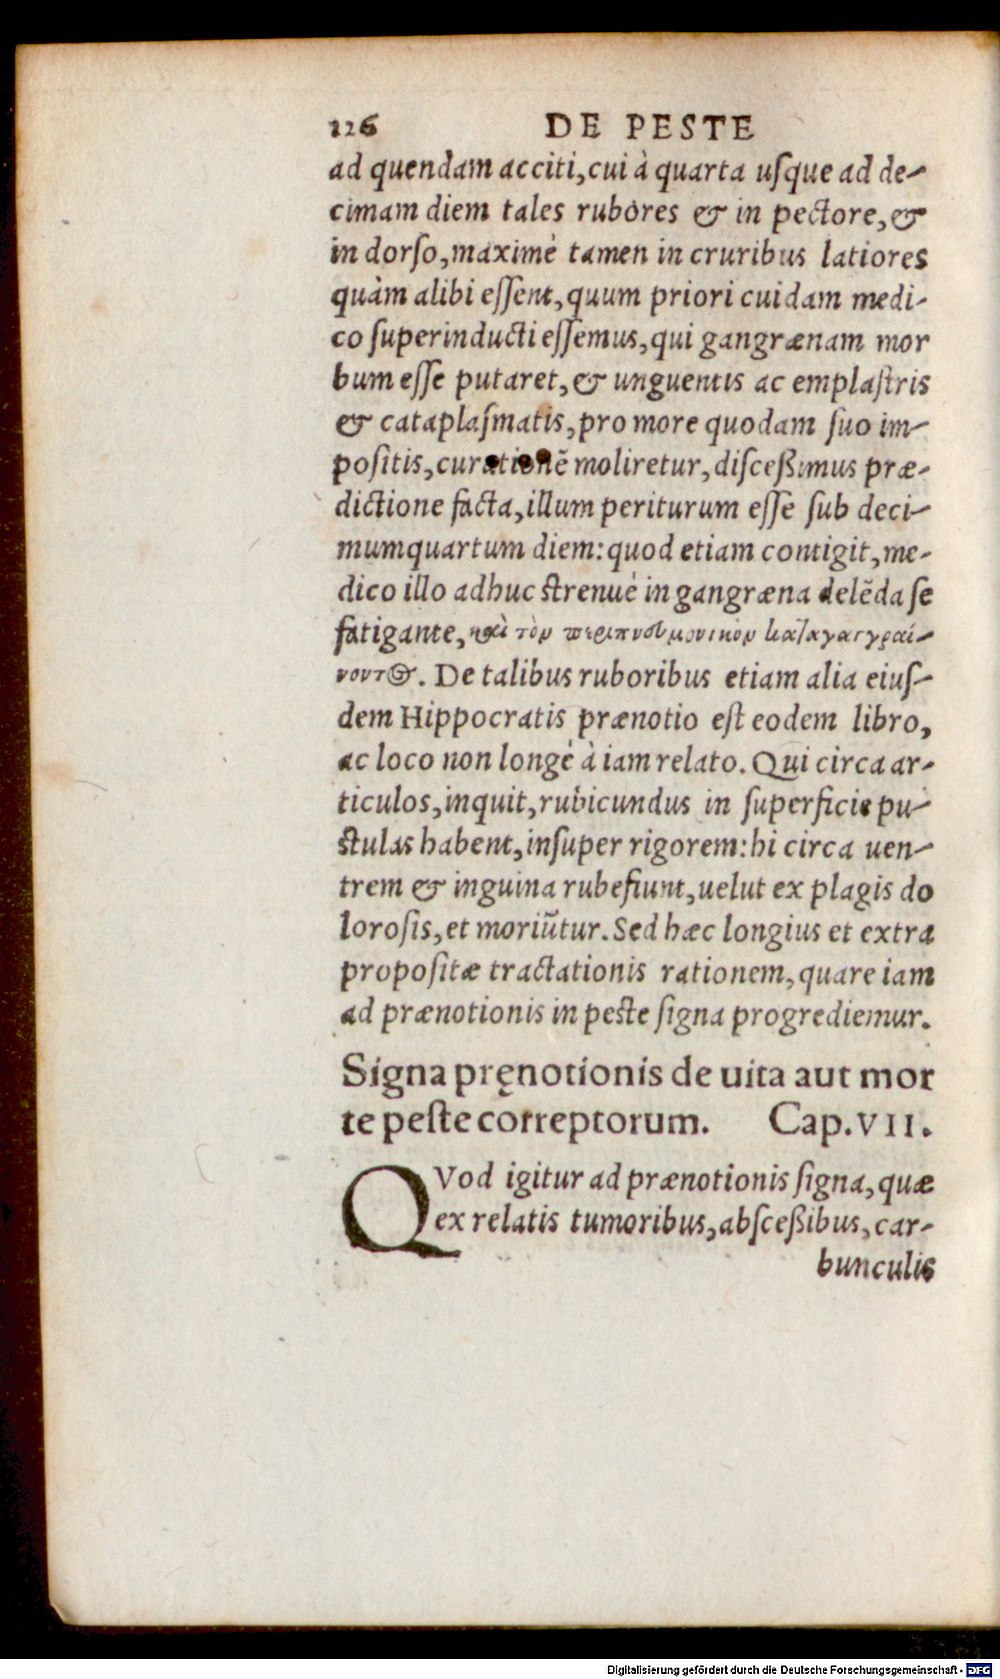 126 DE PESTE
ad quendam acciti, cui à quarta uſque ad de-
cimam diem tales rubores & in pectore, &
in dorſo, maximè tamen in cruribus latiores
quàm alibi eſſent, quum priori cuidam medi-
co ſuperinducti eſſemus, qui gangrænam mor
bum eſſe putaret, & unguentis ac emplaſtris
& cataplaſmatis, pro more quodam ſuo im-
poſitis, curationẽ moliretur, diſceßimus præ-
dictione facta, illum periturum eſſe ſub deci-
mumquartum diem: quod etiam contigit, me-
dico illo adhuc ſtrenuè in gangræna delẽda ſe
fatigante, καὶ τὸν περιπνευμονικὸν καταγαγγραί-
νοντος. De talibus ruboribus etiam alia eiuſ-
dem Hippocratis prænotio eſt eodem libro,
ac loco non longè à iam relato. Qui circa ar-
ticulos, inquit, rubicundas in ſuperficie pu-
ſtulas habent, inſuper rigorem: hi circa uen-
trem & inguina rubefiunt, uelut ex plagis do
loroſis, et moriũtur. Sed hæc longius et extra
propoſitæ tractationis rationem, quare iam
ad prænotionis in peſte ſigna progrediemur.
Signa pręnotionis de uita aut mor
te peſte correptorum. Cap. VII.
QVod igitur ad prænotionis ſigna, quæ
ex relatis tumoribus, abſceßibus, car-
bunculis
Digitalisierung gefördert durch die Deutsche Forschungsgemeinschaft - DFG